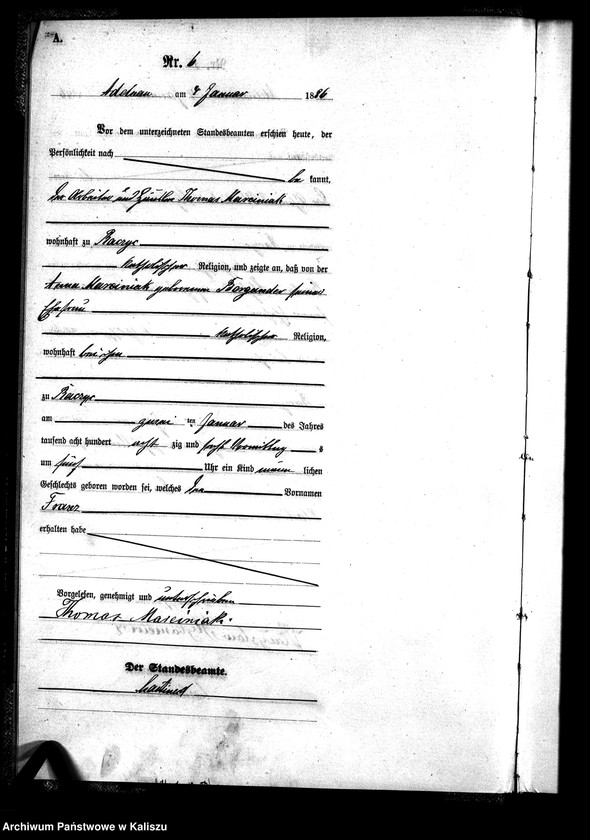 A.
Nr. 6
Adelnau am 4 Januar 1886
Vor dem unterzeichneten Standesbeamten erschien heute, der
Persönlichkeit nach
be kannt,
der Arbeiter und Häusler Thomas Marciniak
wohnhaft zu Raczyc
katholischer Religion, und zeigte an, daß von der
Anna Marciniak geborenen seiner
Ehefrau
katholischer Religion,
wohnhaft bei ihm
zu Raczyc
am zwei ten Januar des Jahres
tausend acht hundert acht zig und sechs Vormittag s
um fünf Uhr ein Kind männ lichen
Geschlechts geboren worden sei, welches den Vornamen
Franz
erhalten habe
Vorgelesen, genehmigt und unterschrieben
Thomas Marciniak
Der Standesbeamte.
Archiwum Państwowe w Kaliszu